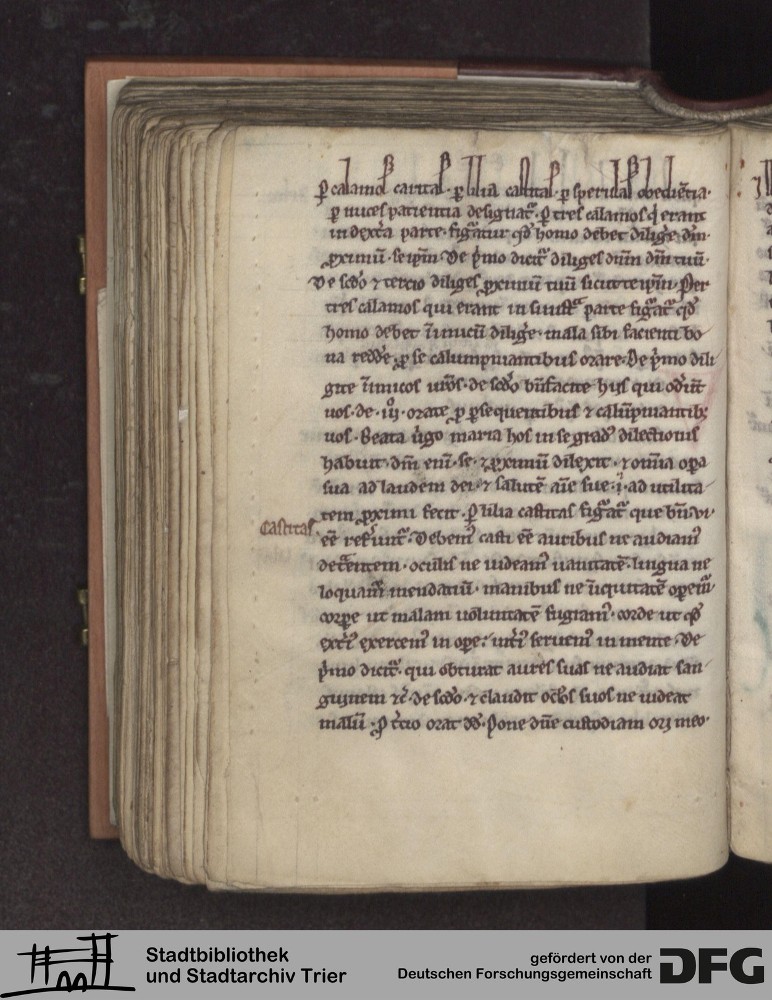 ꝑ calamoſ caritaſ · ꝑ lilia caſtitaſ · ꝑ sperulaſ obediẽtia ·
ꝑ nuces patientia designat᷑ · ꝑ tres calamos q̇ erant
in dext̾a parte · figᷓatur qđ homo debet dilig̾e · dm̃ ·
ꝓximũ · se ip̃m · De p̾mo dicit᷑ diliges dñm dm̃ tuũ ·
De sc̃do ⁊ tercio diliges ꝓximũ tuũ sicut te ip̃m · Per
tres calamos qui erant in sinistᷓ parte figᷓat᷑ qđ
homo debet ĩnimicũ dilig̾e · mala sibi facienti bo
na redd̾e · ꝓ se calumpniantibus orare · De p̾mo dili
gite ĩnimicos ur̃os · de sc̃do bñfacite hijs qui odĩũt
uos · de · iijͦ · orate ꝓ ꝑsequentibus ⁊ calũpniantibꝫ
uos · Beata uͥgo maria hos in se gradꝰ dilectionis
habuit · dm̃ eniͫ · se · ⁊ ꝓximũ dilexit · ⁊ om̃ia oꝑa
sua ad laudem dei · ⁊ salutẽ aĩe sue · ⁊ · ad utilita
tem ꝓximi fecit · ꝑ lilia castitas figᷓat᷑ que bñ ·vi·
Castitas
eẽ refer̃unt᷑ · Debemꝰ casti eẽ auribus ne audiamꝰ
det̾hentem · oculis ne uideamꝰ uanitatẽ · lingua ne
loquamꝰ mendatiũ · manibus ne ĩiquitatẽ oꝑemᷣ
corꝑe ut malam uoluntatẽ fugiamꝰ · corde ut qđ
ext̾iꝰ exercemꝰ in oꝑe · int̾iꝰ seruemꝰ in mente · De
p̾mo dicit᷑ · qui obturat aures suas ne audiat san
guinem ⁊c̃ · de sc̃do · ⁊ claudit oc̃los suos ne uideat
malũ · ꝓ t̾cio orat dđ · Pone dñe custodiam orj meo ·
Stadtbibliothek
und Stadtarchiv Trier
gefördert von der
Deutschen Forschungsgemeinschaft DFG